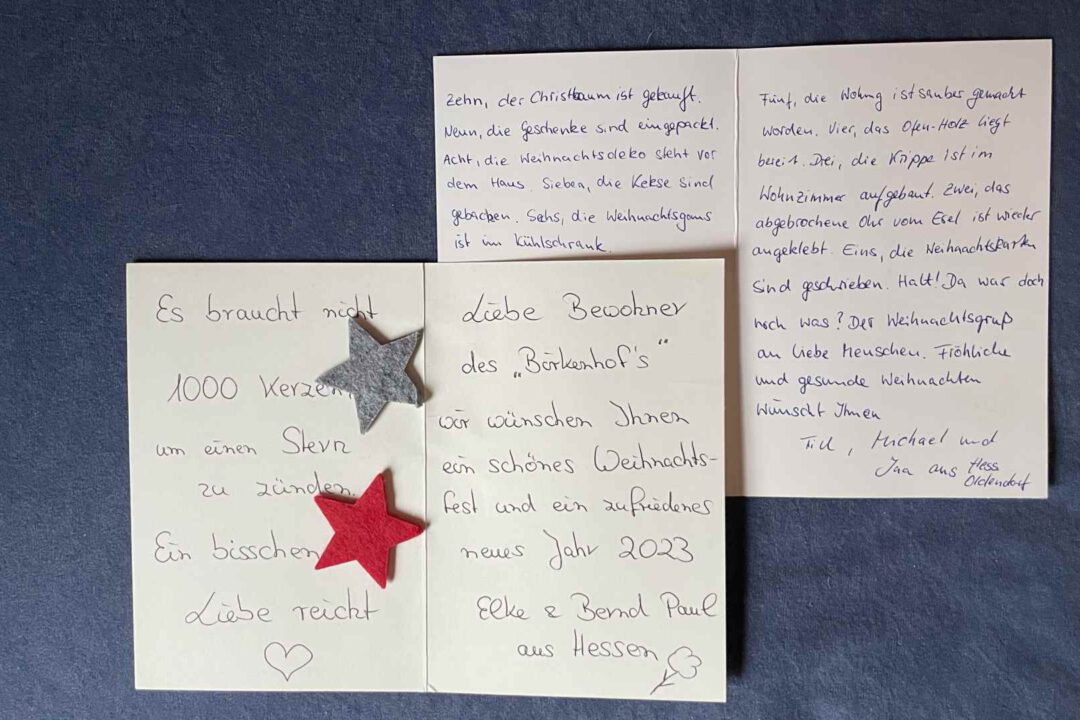 Zehn, der Christbaum ist gekauft.
Neun, die Geschenke sind eingepackt.
Acht, die Weihnachtsdeko steht vor
dem Haus. Sieben, die Kekse sind
gebacken. Sehs, die Weihnachtsgans
ist im Kühlschrank.
Fünf, die Wohng ist sauber gemacht
worden. Vier, das Ofen-Holz liegt
bereit. Drei, die Krippe ist im
Wohnzimmer aufgebaut. Zwei, das
abgebrochene Ohr vom Esel ist wieder
angeklebt. Eins, die Weihnachtskarten
sind geschrieben. Halt! Da war doch
noch was? Der Weihnachtsgruß
an liebe Menschen. Fröhliche
und gesunde Weihnachten
wünscht Ihnen
Till, Michael und
aus Hess
Oldendorf
Es braucht nicht
1000 Kerzen,
um einen Stern
zu zünden.
Ein bisschen
Liebe reicht
Liebe Bewohner
des „Börkenhof's“
wir wünschen Ihnen
ein schönes Weihnachts-
fest und ein zufriedenes
neues Jahr 2023
Elke & Bernd Paul
aus Hessen